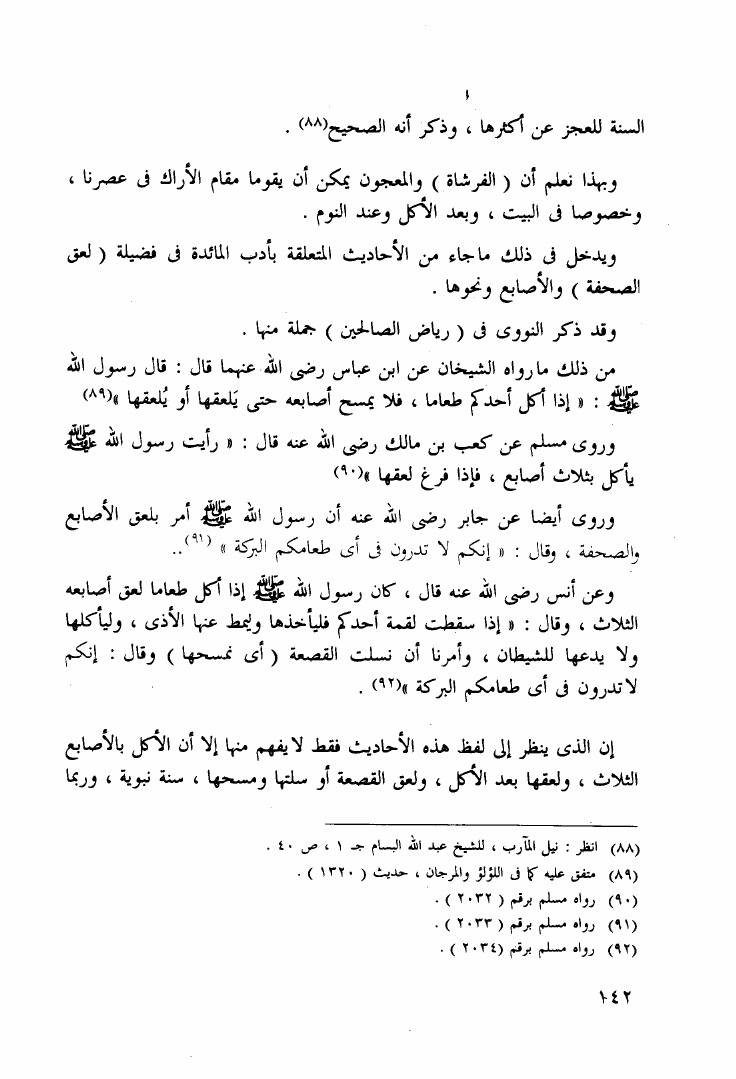 السنة للعجز عن أكثرها ، وذكر أنه الصحيح(٨٨) .
وبهذا نعلم أن ( الفرشاة ) والمعجون يمكن أن يقوما مقام الأراك فى عصرنا ،
وخصوصا فى البيت ، وبعد الأكل وعند النوم .
ويدخل فى ذلك ماجاء من الأحاديث المتعلقة بأدب المائدة فى فضيلة ( لعق
الصحفة ) والأصابع ونحوها .
وقد ذكر النووى فى ( رياض الصالحين ) جملة منها .
من ذلك مارواه الشيخان عن ابن عباس رضى الله عنهما قال : قال رسول الله
ﷺ : « إذا أكل أحدكم طعاما ، فلا يمسح أصابعه حتى يَلعقها أو يُلعقها »(٨٩)
وروى مسلم عن كعب بن مالك رضى الله عنه قال : « رأيت رسول الله ﷺ
يأكل بثلاث أصابع ، فإذا فرغ لعقها »(٩٠)
وروى أيضا عن جابر رضى الله عنه أن رسول الله ﷺ أمر بلعق الأصابع
والصحفة ، وقال : « إنكم لا تدرون فى أى طعامكم البركة » (٩١)..
وعن أنس رضى الله عنه قال ، كان رسول الله ﷺ إذا أكل طعاما لعق أصابعه
الثلاث ، وقال : « إذا سقطت لقمة أحدكم فليأخذها وليمط عنها الأذى ، وليأكلها
ولا يدعها للشيطان ، وأمرنا أن نسلت القصعة ( أى نمسحها ) وقال : إنكم
لاتدرون فى أى طعامكم البركة »(٩٢) .
إن الذى ينظر إلى لفظ هذه الأحاديث فقط لايفهم منها إلا أن الأكل بالأصابع
الثلاث ، ولعقها بعد الأكل ، ولعق القصعة أو سلتها ومسحها ، سنة نبوية ، وربما
(٨٨) انظر : نيل المآرب ، للشيخ عبد الله البسام جـ ١ ، ص ٤٠ .
(٨٩) متفق عليه كما فى اللؤلؤ والمرجان ، حديث ( ١٣٢٠ ) .
(٩٠) رواه مسلم برقم ( ٢٠٣٢ ) .
(٩١) رواه مسلم برقم ( ٢٠٣٣ ) .
(٩٢) رواه مسلم برقم (٢٠٣٤ ) .
١٤٢